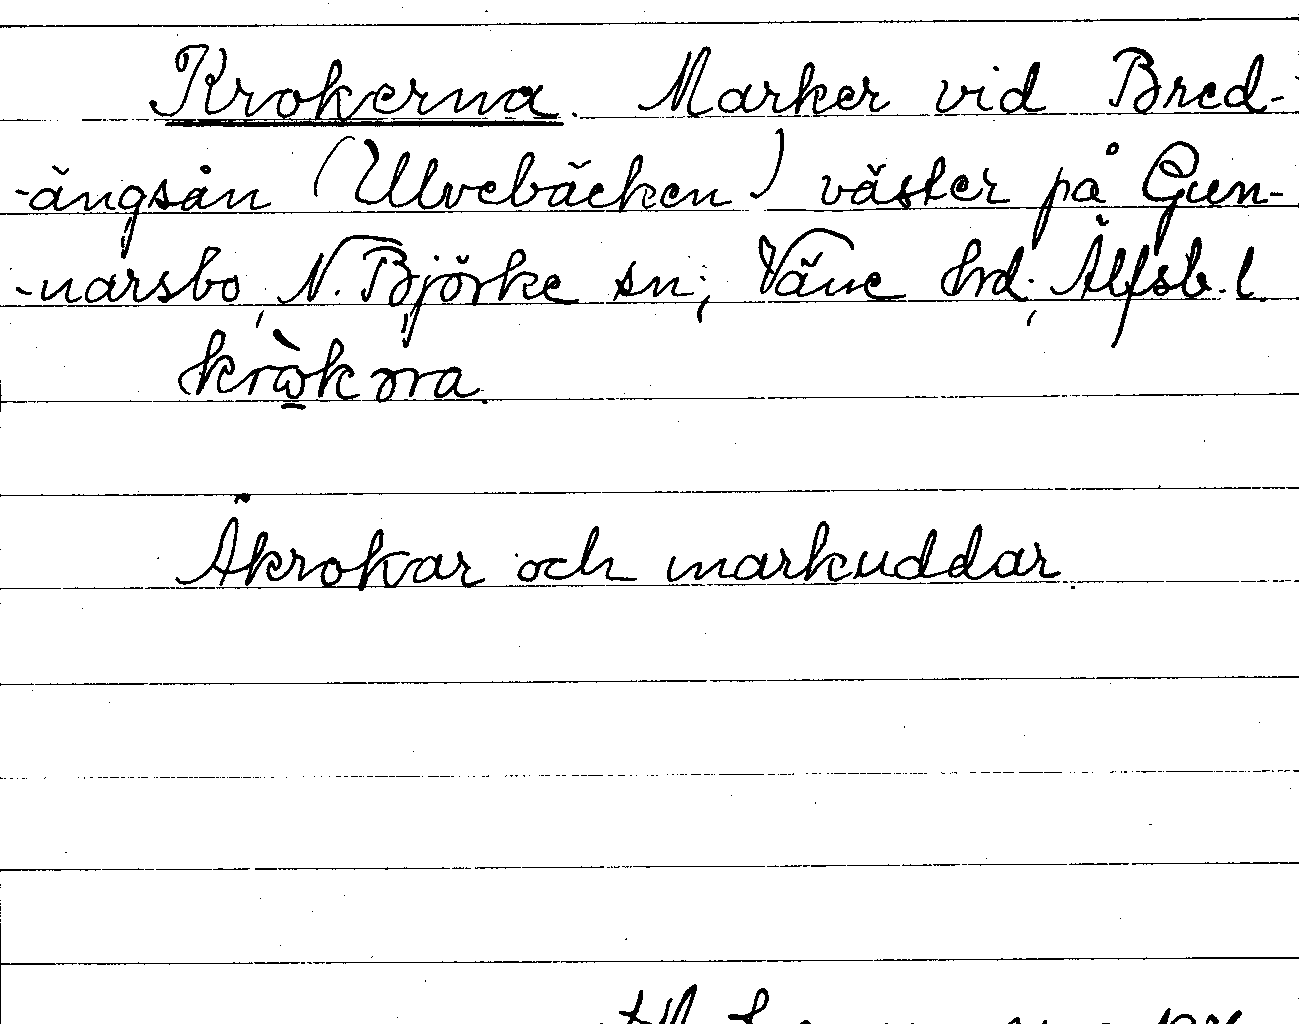 Krokerna. Marker vid Bred-
-ängsån (Ulvebäcken) väster på Gun-
-narsbo, N. Björke sn; Väne hrd; Älfsb. l.
Åkrokar och markuddar.